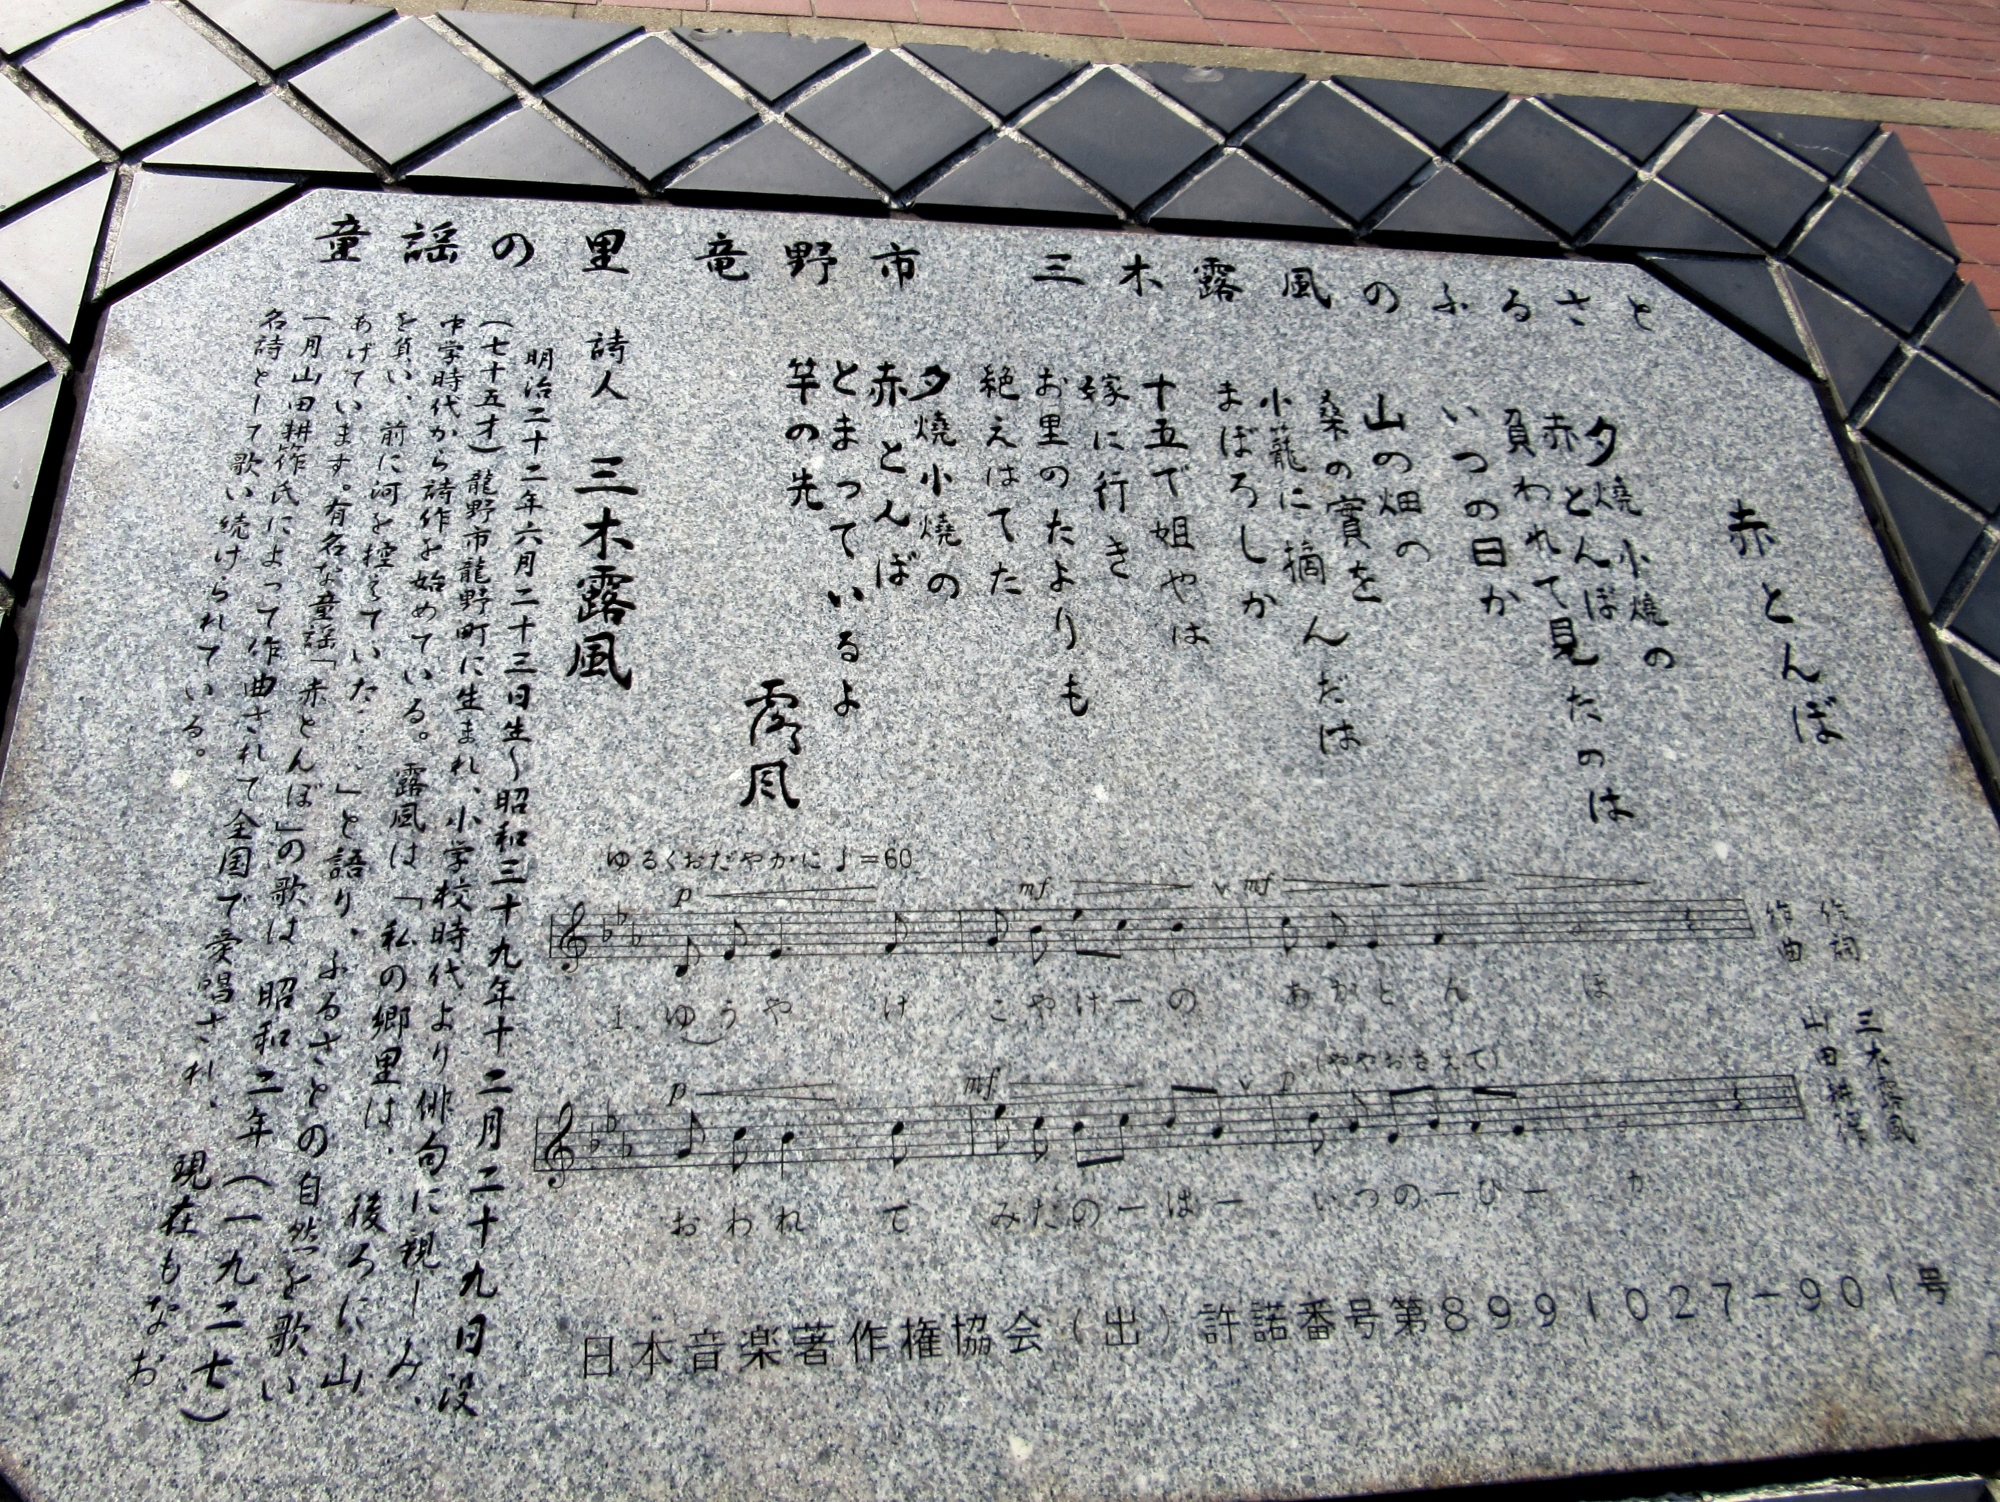 童謡の里 竜野市 三木露風のふるさと
赤とんぼ
夕焼小焼の
赤とんぼ
負われて見たのは
いつの日か
山の畑の
桑の實を
小籠に摘んだは
まぼろしか
十五で姐やは
嫁に行き
お里のたよりも
絶えはてた
夕焼小焼の
赤とんぼ
とまっているよ
竿の先
露風
詩人 三木露風
明治二十二年六月二十三日生〜昭和三十九年十二月二十九日没
(七十五才)龍野市龍野町に生まれ、小学校時代より俳句に親しみ、
中学時代から詩作を始めている。露風は「私の郷里は、後ろに山
を負い、前に河を控えていた…」と語り、ふるさとの自然を歌い
あげています。有名な童謡「赤とんぼ」の歌は昭和二年(一九二七)
一月山田耕筰氏によって作曲されて全国で愛唱され、現在もなお
名詩として歌い続けられている。
作詞 三木露風
作曲 山田耕筰
ゆるくおだやかに ♩=60
p mf v mf
1. ゆうやけ こやけーの あかとんぼ
p mf v p (ややおさえて)
おわれて みたのーはー いつのーひーか
日本音楽著作権協会(出)許諾番号第8991027-901号